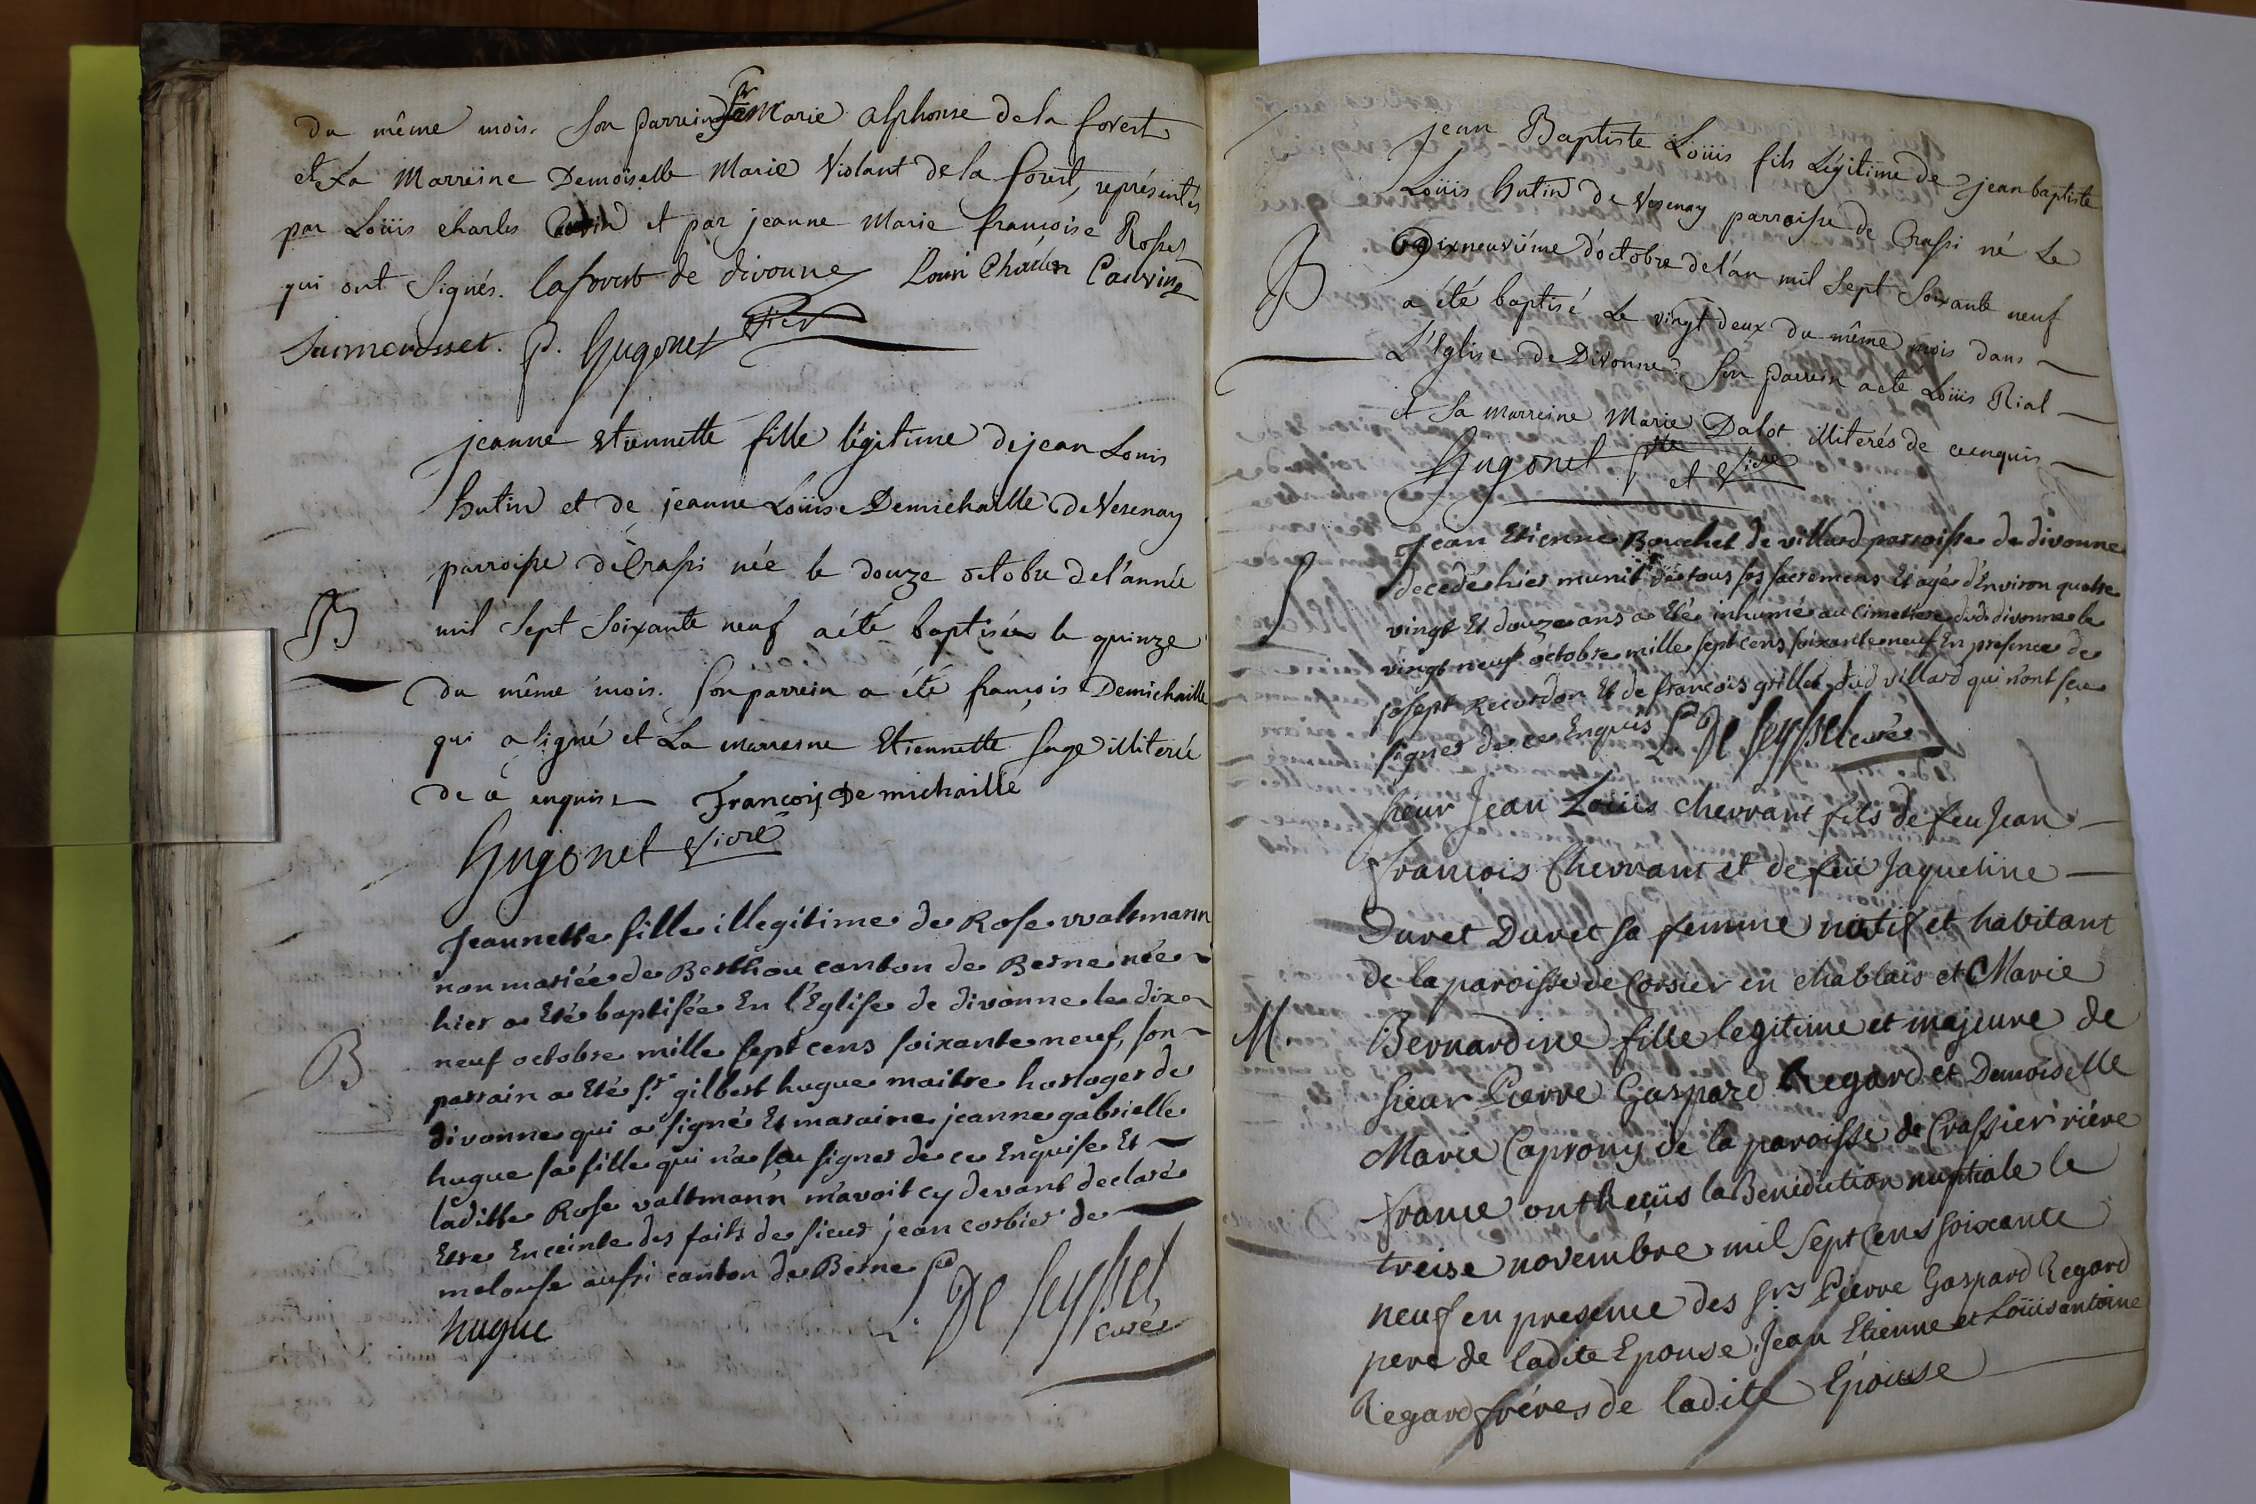 du même mois. Son parrein Sr Marie alphonse de la forest
et La Marreine Demoiselle Marie Violant de la forest, représentés
par Loüis charles Cauvin et par jeanne Marie françoise Rosset
qui ont Signés. laforest de divonne Louis Charles Cauvin
P. Hugonet Vicr
jeanne etiennette fille légitime de jean Louis
hutin et de jeanne Loüise Demichaille de Vesenay
parroisse de Crassi née le douze octobre de l'année
B mil Sept Soixante neuf a été baptisée le quinze
du même mois. Son parrein a été françois Demichaille
qui a signé et La marreine Etiennette Sage illiterée
de ce enquise François De michaille
Hugonet Vicre
Jeannette fille illegitime de Rose wwaltmann
non mariée de Berthou canton de Berne née
hier a Eté baptisée En l'Eglise de divonne le dix
neuf octobre mille sept cens soixante neuf, son
B parrain a Eté sr. gilbert hugue maitre horloger de
divonne qui a signé Et maraine jeanne gabrielle
hugue sa fille qui n'a sçu signer de ce Enquise Et
laditte Rose valtmann m'avoit cy devant declaré
Etre Enceinte des faits de sieur jean corbier de
melouse aussi canton de Berne
hugue L. De Seyssel
curé
jean Baptiste Loüis fils Légitime de jean baptiste
Loüis hutin de Vesenay parroisse de Crassi né Le
B Dixneuviéme d'octobre de l'an mil Sept Soixante neuf
a été baptisé le vingt deux du même mois dans
L'Eglise de Divonne. Son parrein a eté Loüis Rial
et Sa marreine Marie Dalot illiterés de ce enquis
Hugonet Ptre
et Vicre
Jean Etienne Bouchet de villard parroisse de divonne
S decedé hier munit de tous ses sacremens Et agé d'Environ quatre
vingt Et douze ans a Eté inhumé au cimetiere dud. divonne le
vingt neuf octobre mille sept cens soixante neuf En presence de
joseph Recordon Et de françois grillet dud villard qui n'ont sçu
signer de ce Enquis L. De Seyssel curé
sieur Jean Loüis Chevrant fils de feu Jean
François Chevrant et de feüe Jaqueline
Duret Duret sa femme natif et habitant
de la paroisse de Corsier en Chablais et Marie
M. Bernardine fille legitime et majeure de
sieur Pierre Gaspard Regard et Demoiselle
Marie Caprony de la paroisse de Crassier riére
France ont Reçüs la Benediction nuptiale le
treise novembre mil sept Cens soixante
neuf en presence des Srs Pierre Gaspard Regard
pere de ladite Epouse Jean Etienne et Loüis antoine
Regard fréres de ladite Epouse